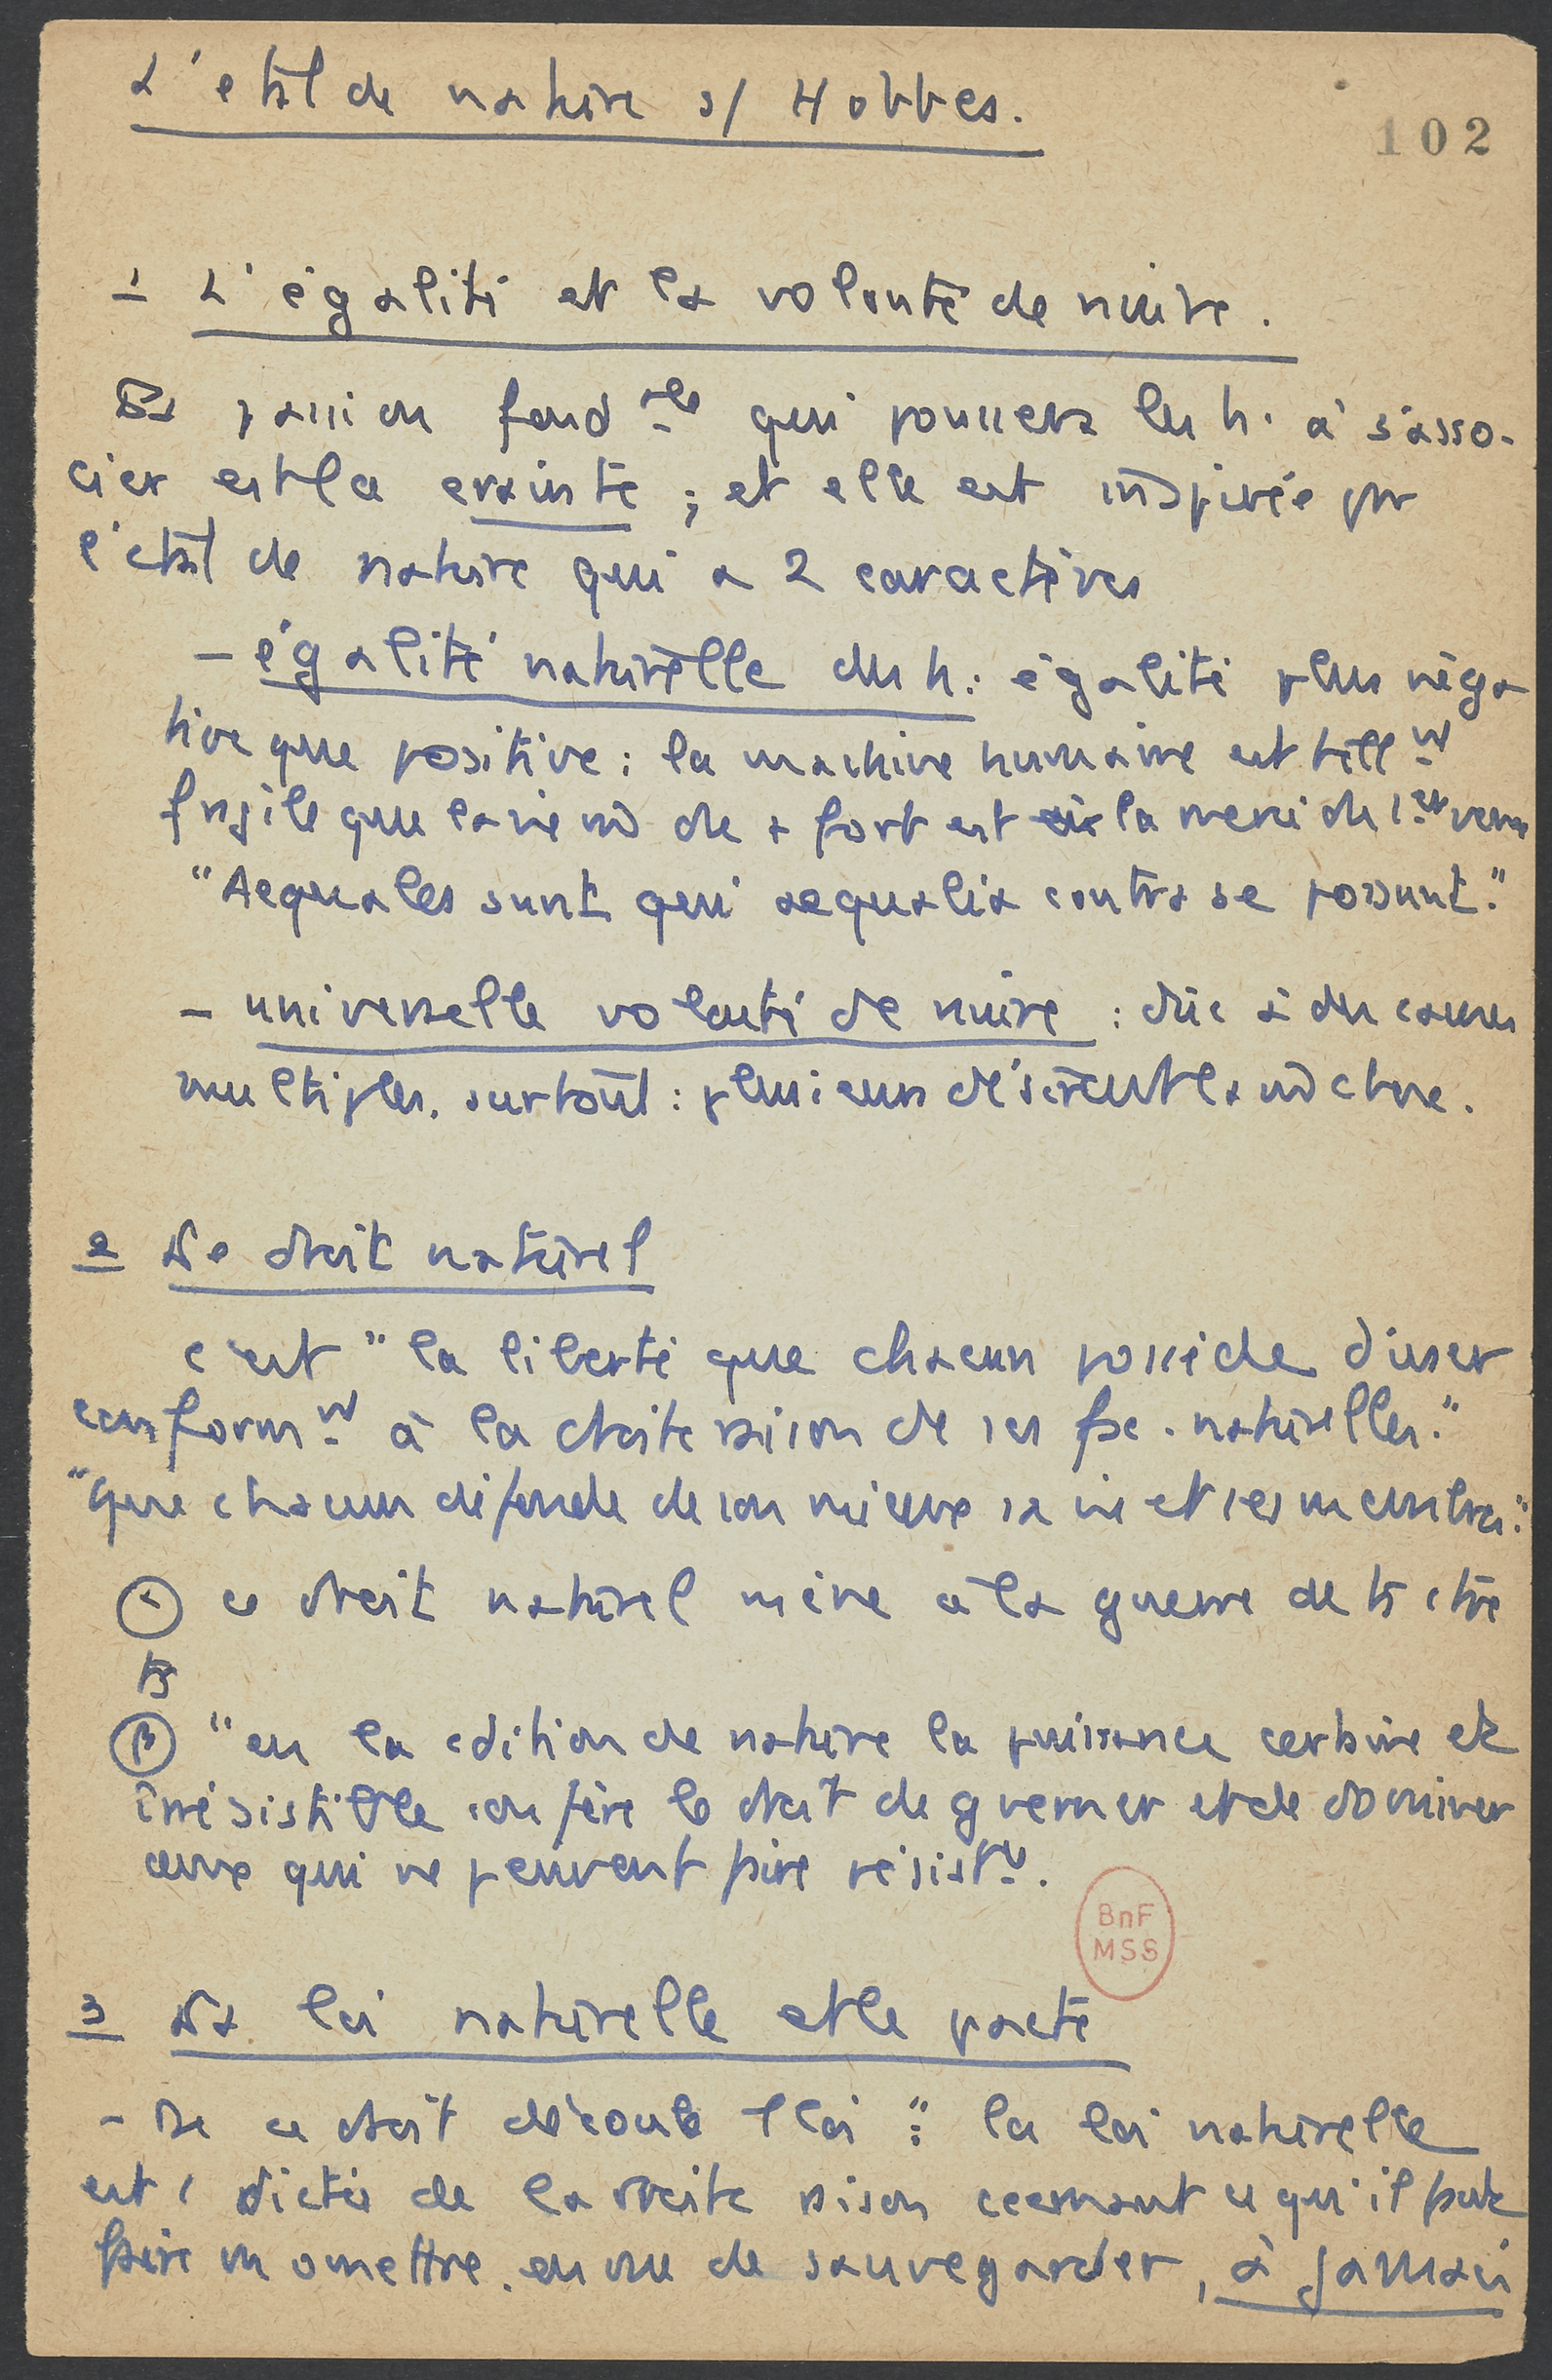 L'état de nature s/ Hobbes.
102
1 L'égalité et la volonté de nuire.
La passion fond ale qui poussera les h. à s'asso-
cier est la crainte ; et elle est inspirée par
l'état de nature qui a 2 caractères
- égalité naturelle des h : égalité plus néga
tive que positive : la machine humaine est tell nt
fragile que la vie du de + fort est à la merci du 1er venu
"Aequales sunt qui aequalia contra se possunt."
- universelle volonté de nuire : dûe à des causes
multiples. surtout : plusieurs désirent la m̂ chose.
2 Le droit naturel
c'est "la liberté que chacun possède d'user
conform nt à la droite raison de ses fac. naturelles."
"que chacun défende de son mieux sa vie et ses membres."
α ce droit naturel mène à la guerre de ts ctre
ts
β "en la cdition de nature la puissance certaine et
irrésistible confère le droit de gverner et de dominer
ceux qui ne peuvent faire résist ce.
BnF
MSS
3 La loi naturelle et le pacte
- De ce droit découle 1 loi : "la loi naturelle
est 1 dictée de la droite raison ccernant ce qu'il faut
faire ou omettre en vue de sauvegarder, à jamais